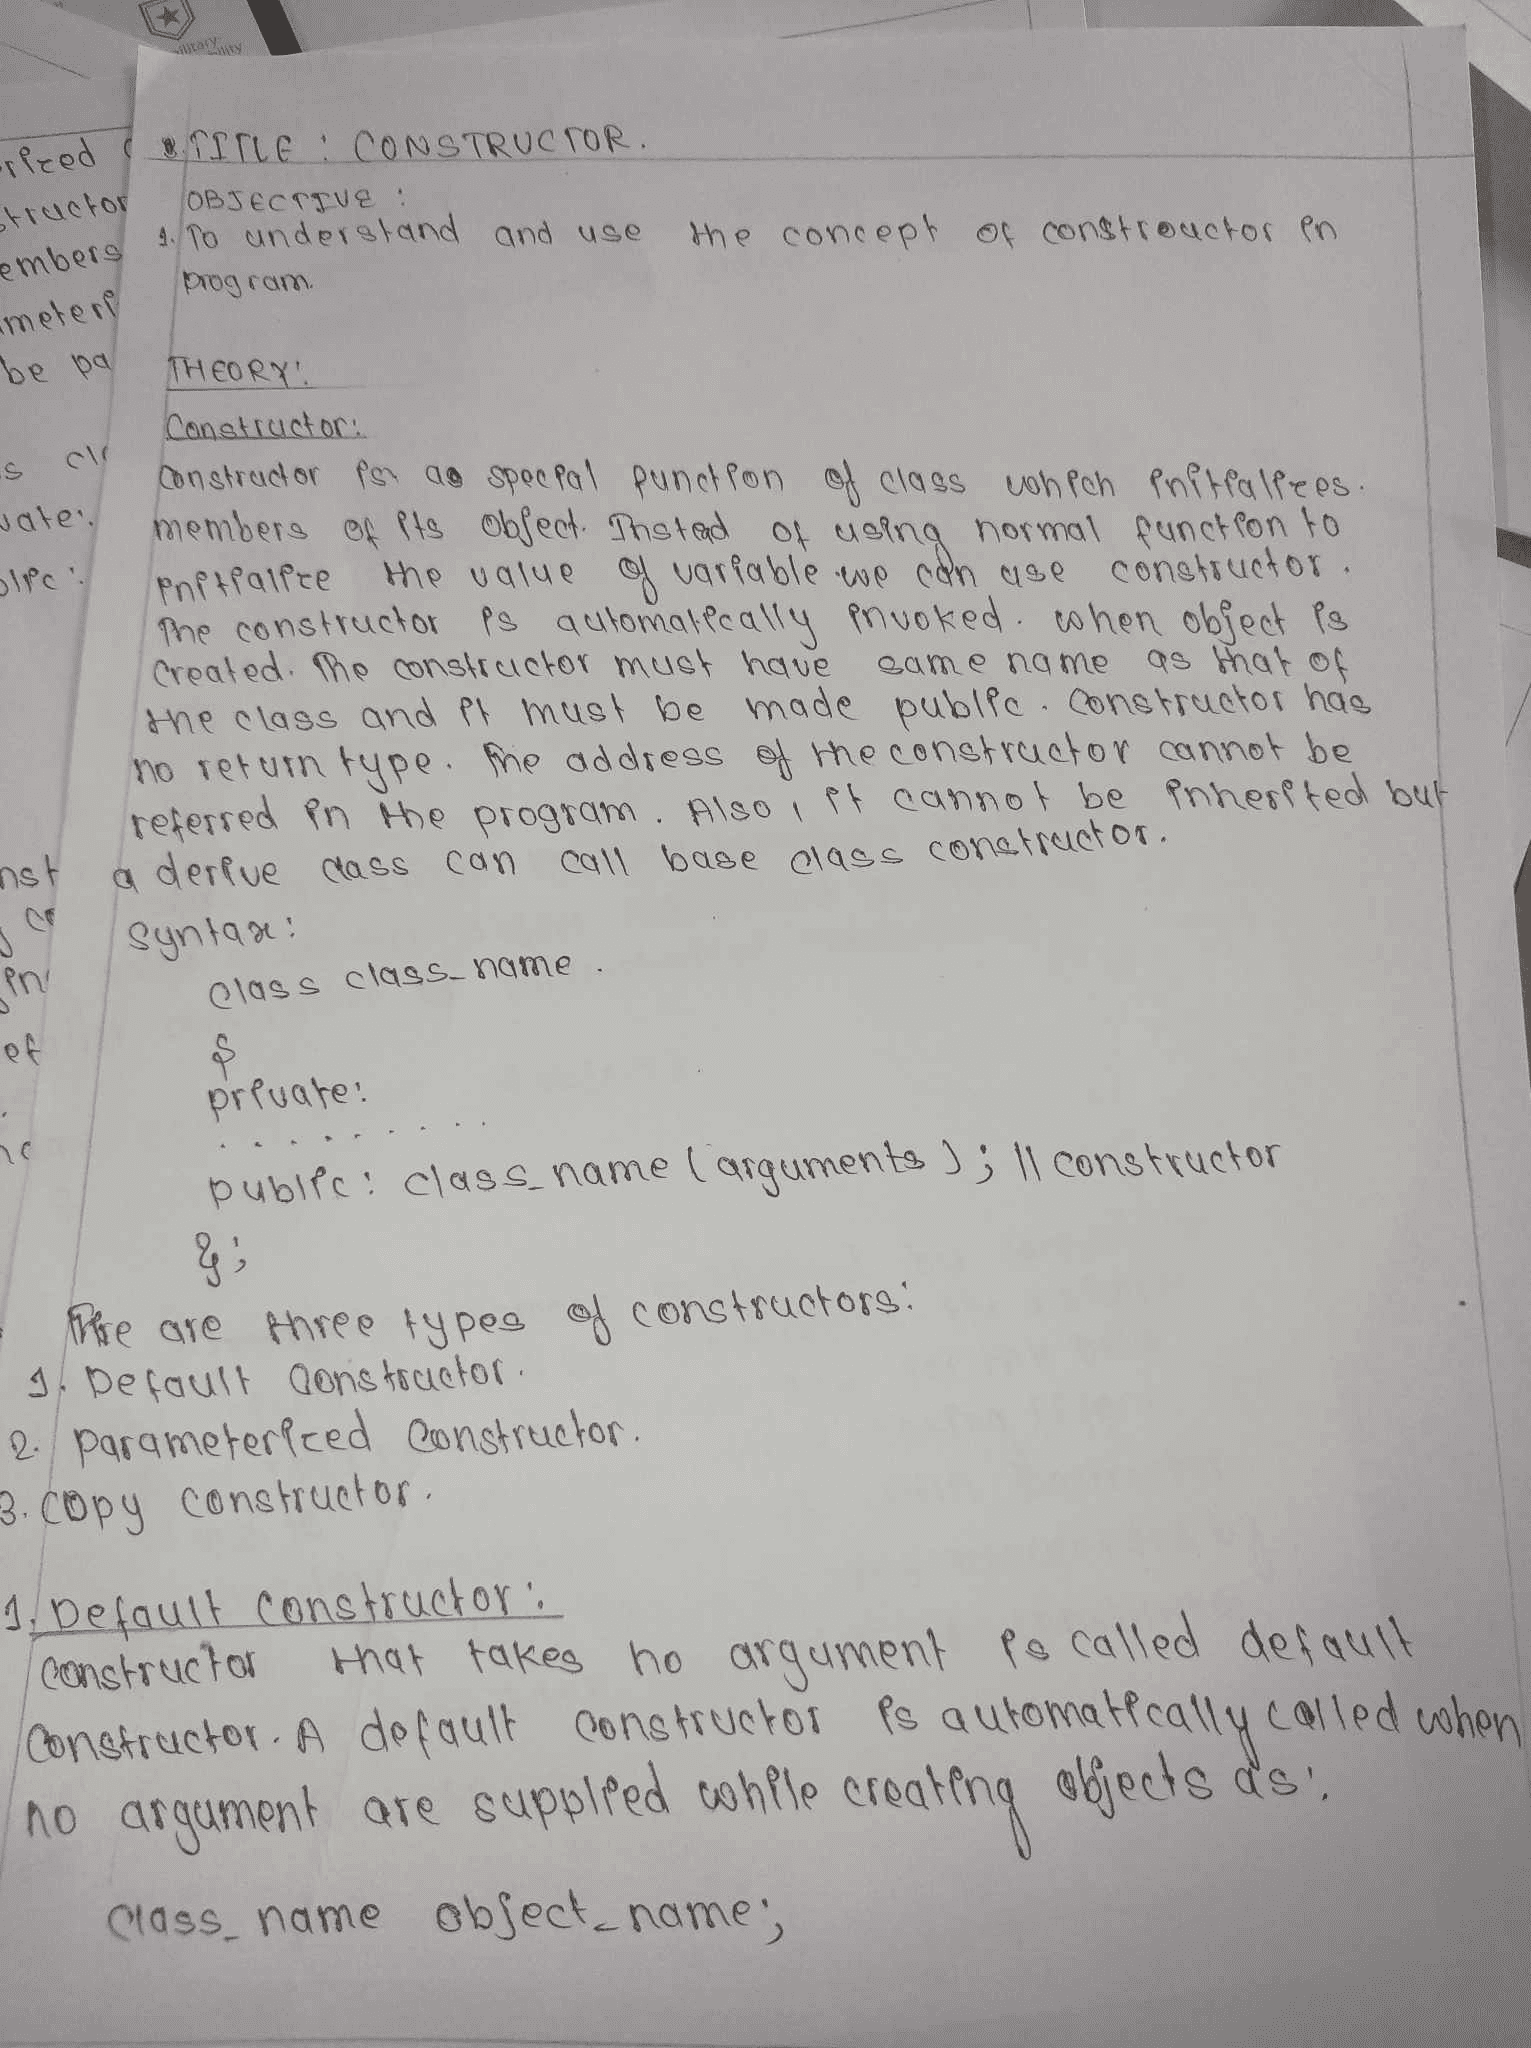 TITLE : CONSTRUCTOR.
OBJECTIVE :
1. To understand and use the concept of constrouctor in
program.
THEORY:
Constructor:
Constructor is a special function of class which initializes.
members of its object. Insted of using normal function to
initialize the value of variable we can use constructor.
The constructor is automatically invoked. when object is
created. The constructor must have same name as that of
the class and it must be made public. Constructor has
no return type. The address of the constructor cannot be
referred in the program. Also, it cannot be inherited but
a derive class can call base class constructor.
Syntax:
class class_name.
{
private:
. . . . . . . . . .
public: class_name (arguments); // constructor
};
are three types of constructors:
1. Default Constructor.
2. Parameterized Constructor.
3. Copy constructor.
1. Default constructor:
Constructor that takes no argument is called default
constructor. A default constructor is automatically called when
no argument are supplied while creating objects as:
class_name object_name;
rized
structor
embers
meteri
be pa
s cl
vate:
blic:
nst
co
in
ef